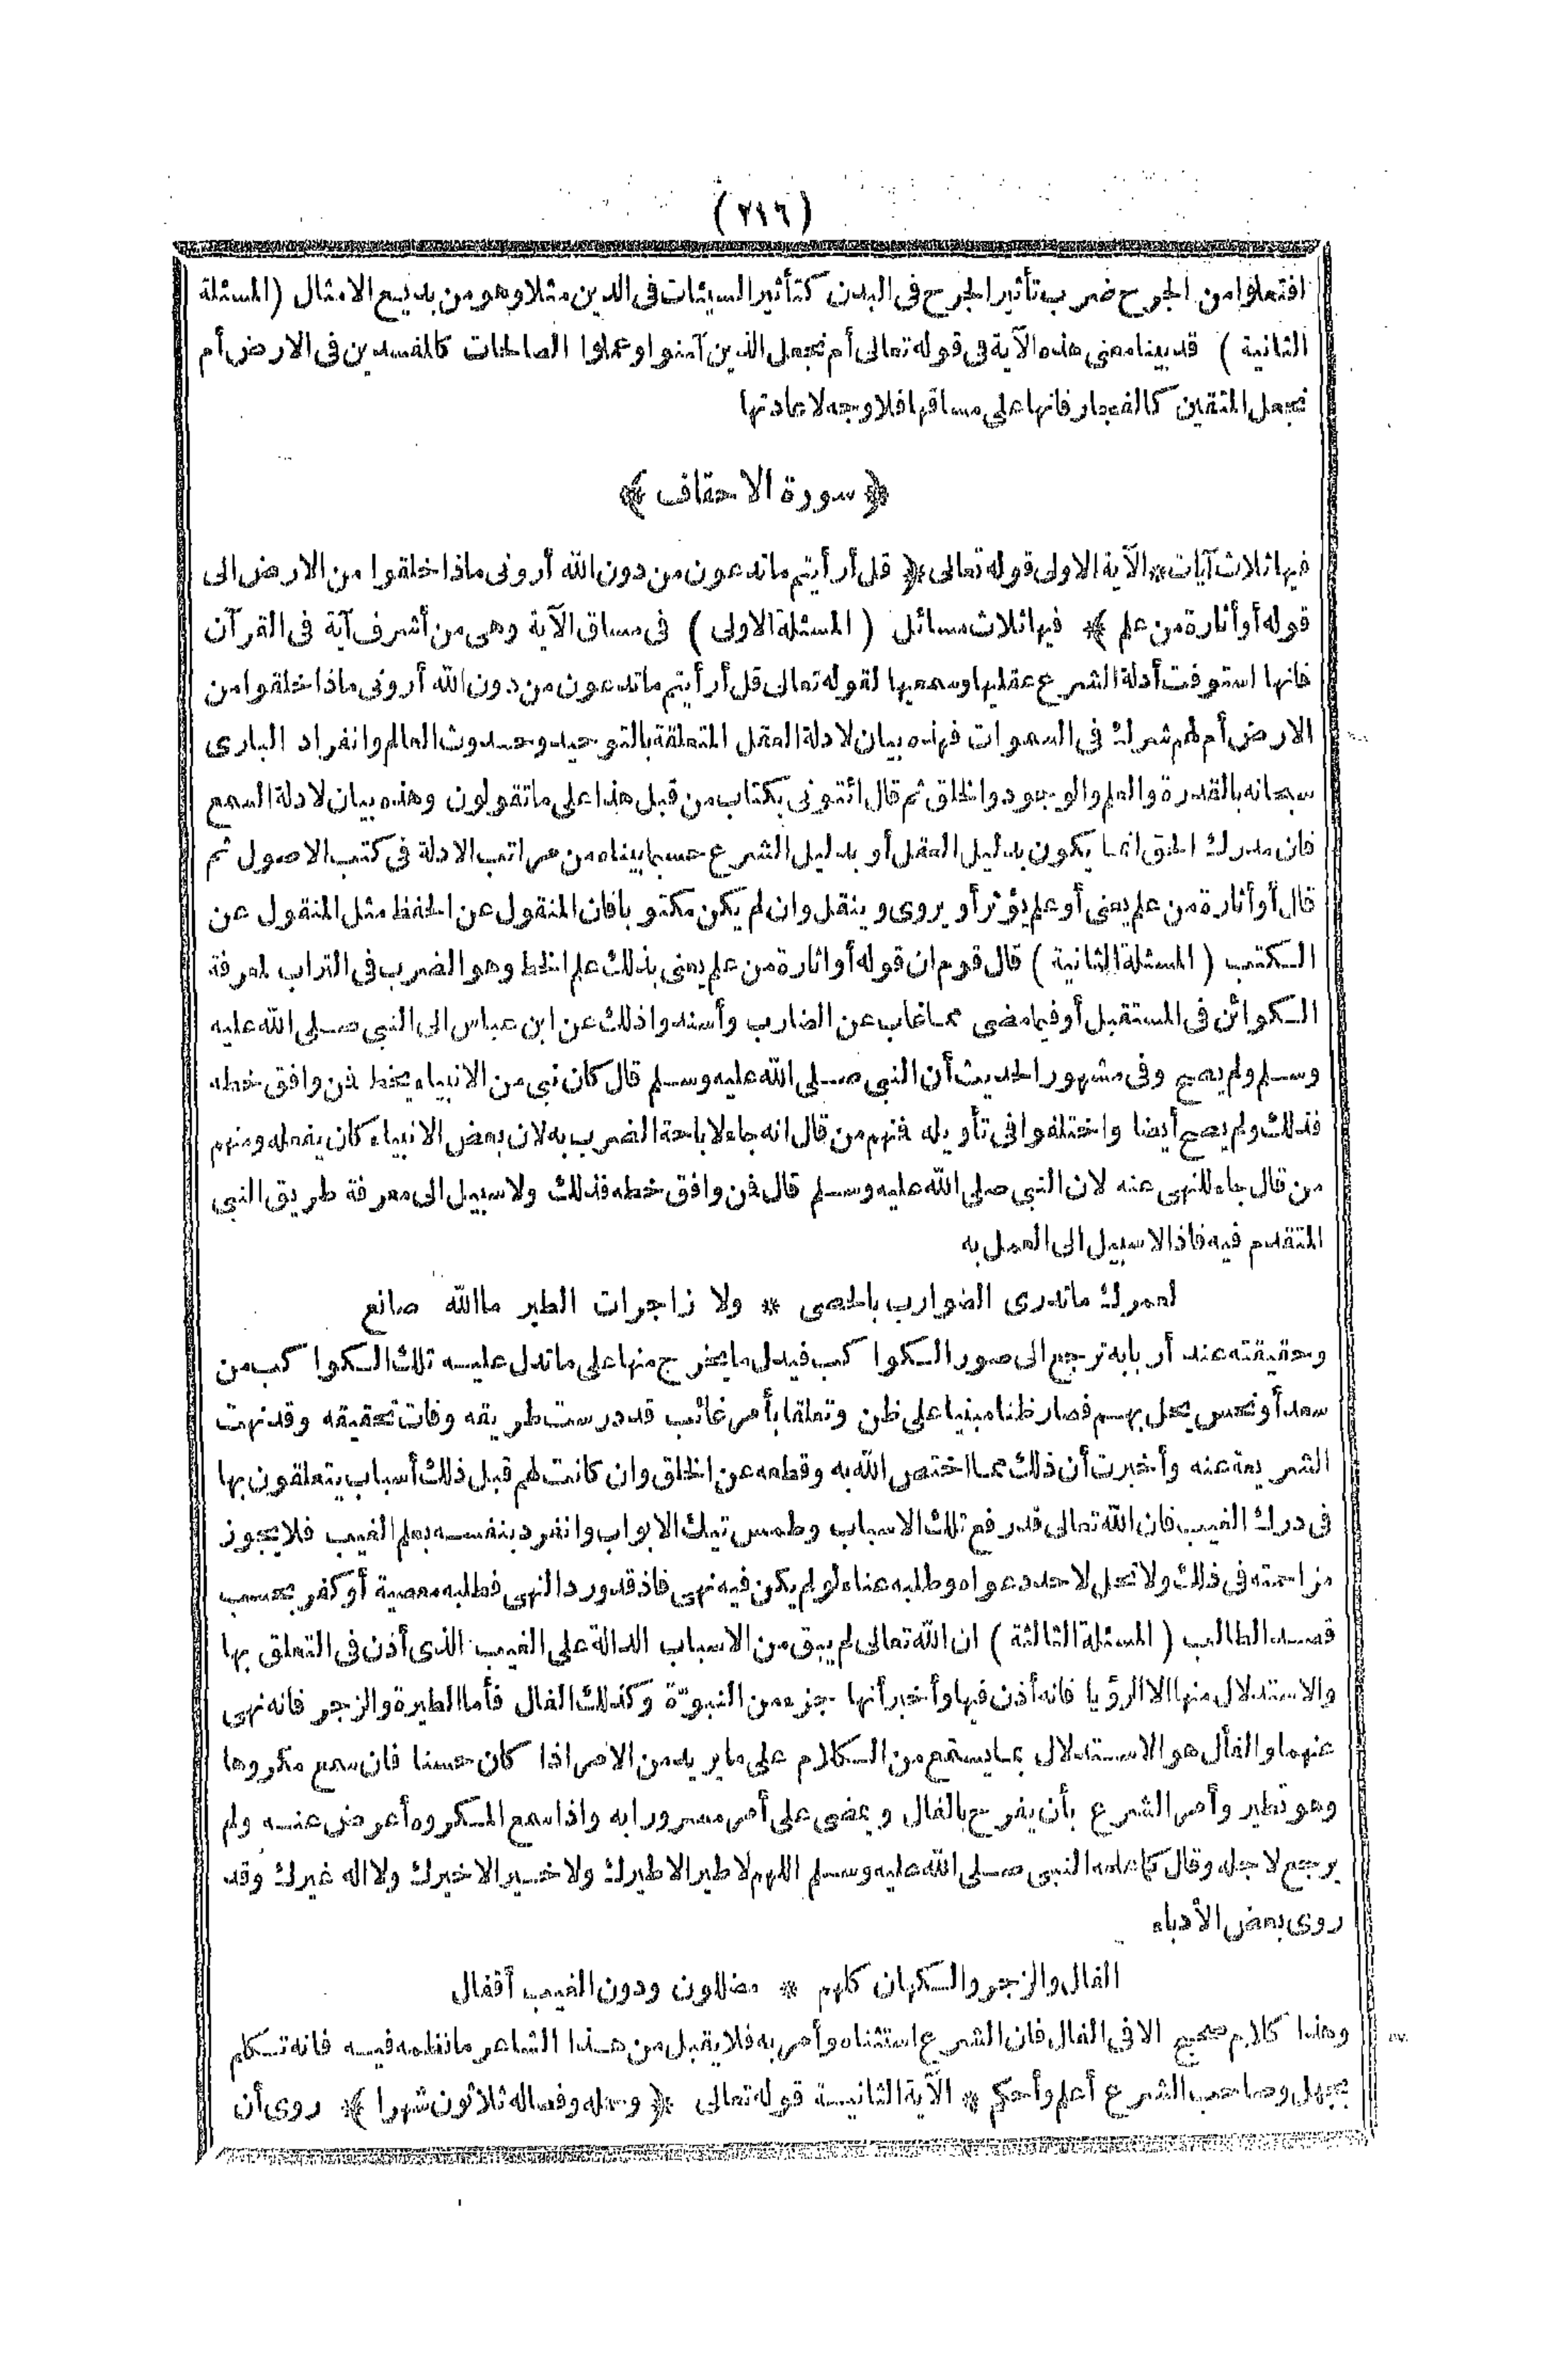 (٢١٦)
افتعلوا من الجرح ضرب تأثير الجرح في البدن كتأثير السيئات في الدين مثلا وهو من بديع الامثال (المسئلة
الثانية) قد بينا معنى هذه الآية في قوله تعالى أم نجعل الذين آمنوا وعملوا الصالحات كالمفسدين في الارض أم
نجعل المتقين كالفجار فانها على مساقها فلا وجه لاعادتها
﴿ سورة الاحقاف ﴾
فيها ثلاث آيات * الآية الاولى قوله تعالى ﴿ قل أرأيتم ما تدعون من دون الله أروني ماذا خلقوا من الارض الى
قوله أو أثارة من علم ﴾ فيها ثلاث مسائل (المسئلة الاولى) في مساق الآية وهي من أشرف آية في القرآن
فانها استوفت أدلة الشرع عقليها وسمعيها لقوله تعالى قل أرأيتم ما تدعون من دون الله أروني ماذا خلقوا من
الارض أم لهم شرك في السموات فهذه بيان لادلة العقل المتعلقة بالتوحيد وحدوث العالم وانفراد الباري
سبحانه بالقدرة والعلم والوجود والخلق ثم قال ائتوني بكتاب من قبل هذا على ما تقولون وهذه بيان لادلة السمع
فان مدرك الحق انما يكون بدليل العقل أو بدليل الشرع حسبما بيناه من مراتب الادلة في كتب الاصول ثم
قال أو أثارة من علم يعنى أو علم يؤثر أو يروى وينقل وان لم يكن مكتوبا فان المنقول عن الحفظ مثل المنقول عن
الكتب (المسئلة الثانية) قال قوم ان قوله أو اثارة من علم يعنى بذلك علم الخط وهو الضرب في التراب لمعرفة
الكوائن في المستقبل أو فيما مضى مما غاب عن الضارب وأسندوا ذلك عن ابن عباس الى النبي صلى الله عليه
وسلم ولم يصح وفي مشهور الحديث أن النبي صلى الله عليه وسلم قال كان نبي من الانبياء يخط فمن وافق خطه
فذلك ولم يصح أيضا واختلفوا في تأويله فمنهم من قال انه جاء لاباحة الضرب به لان بعض الانبياء كان يفعله ومنهم
من قال جاء للنهى عنه لان النبي صلى الله عليه وسلم قال فمن وافق خطه فذلك ولا سبيل الى معرفة طريق النبي
المتقدم فيه فاذا لا سبيل الى العمل به
لعمرك ما تدرى الضوارب بالحصى * ولا زاجرات الطير ما الله صانع
وحقيقته عند أربابه ترجع الى صور الكواكب فيدل ما يخرج منها على ما تدل عليه تلك الكواكب من
سعد أو نحس يحل بهم فصار ظنا مبنيا على ظن وتعلقا بأمر غائب قد درست طريقه وفات تحقيقه وقد نهت
الشريعة عنه وأخبرت أن ذلك مما اختص الله به وقطعه عن الخلق وان كانت لهم قبل ذلك أسباب يتعلقون بها
في درك الغيب فان الله تعالى قد رفع تلك الاسباب وطمس تيك الابواب وانفرد بنفسه بعلم الغيب فلا يجوز
مزاحمته في ذلك ولا تحل لاحد دعواه وطلبه عناء لو لم يكن فيه نهى فاذ قد ورد النهى فطلبه معصية أو كفر بحسب
قصد الطالب (المسئلة الثالثة) ان الله تعالى لم يبق من الاسباب الدالة على الغيب الذى أذن في التعلق بها
والاستدلال منها الا الرؤيا فانه أذن فيها وأخبر أنها جزء من النبوّة وكذلك الفال فأما الطيرة والزجر فانه نهى
عنهما والفأل هو الاستدلال بما يسمع من الكلام على ما يريد من الامر اذا كان حسنا فان سمع مكروها
وهو تطير وأمر الشرع بأن يفرح بالفال ويمضى على أمر مسرورا به واذا سمع المكروه أعرض عنه ولم
يرجع لاجله وقال كما علمه النبي صلى الله عليه وسلم اللهم لا طير الا طيرك ولا خير الا خيرك ولا اله غيرك وقد
روى بعض الأدباء
الفال والزجر والكهان كلهم * مضللون ودون الغيب أقفال
وهذا كلام صحيح الا في الفال فان الشرع استثناه وأمر به فلا يقبل من هذا الشاعر ما نظمه فيه فانه تكلم
بجهل وصاحب الشرع أعلم وأحكم * الآية الثانية قوله تعالى ﴿ وحمله وفصاله ثلاثون شهرا ﴾ روى أن